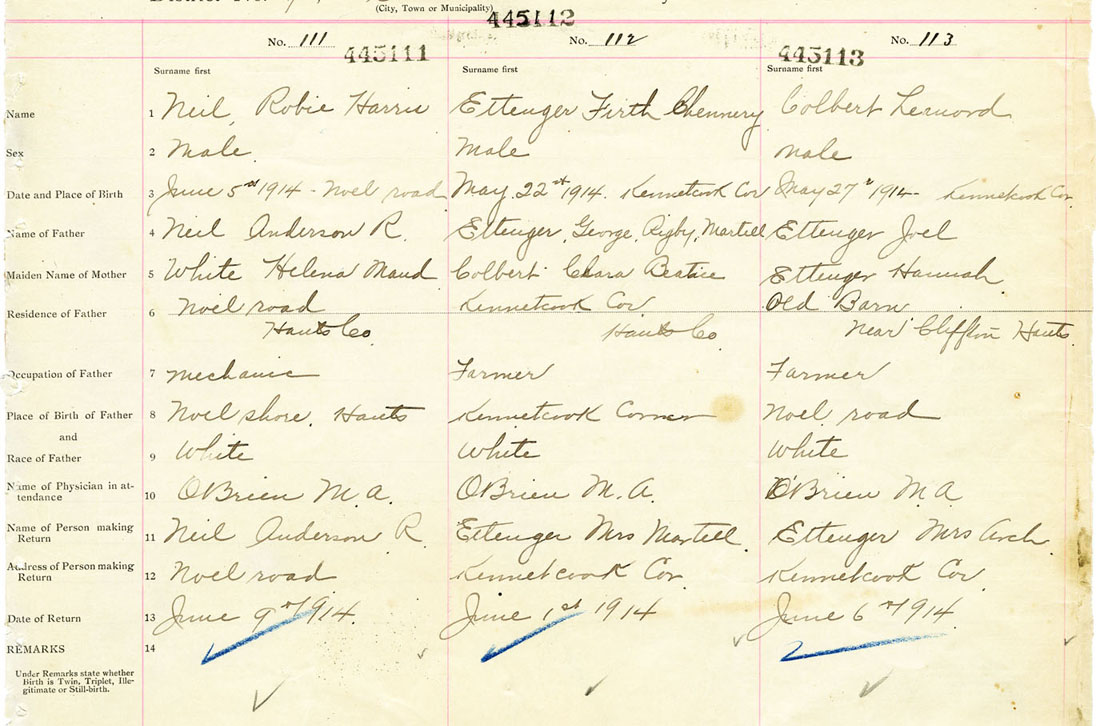 (City, Town or Municipality)
445112
No. 111
No. 112
No. 113
445111
445113
Surname first
Surname first
Surname first
Name 1 Neil, Robie Harris Ettenger Firth Chennery Colbert Lernord
Sex 2 Male. Male male
Date and Place of Birth 3 June 5th 1914 - Noel road May. 22nd 1914. Kennetcook Cor May 27th 1914 - Kennetcook Cor.
Name of Father 4 Neil Anderson R. Ettenger, George, Rigby, Martell Ettenger Joel
Maiden Name of Mother 5 White Helena Maud Colbert Clara Beatrice Ettenger Hannah
Residence of Father 6 Noel road Kennetcook Cor. Old Barn
Hants Co. Hants Co. Near Cliffton Hants.
Occupation of Father 7 mechanic Farmer Farmer
Place of Birth of Father 8 Noel shore. Hants Kennetcook Corner Noel road
and
Race of Father 9 White White White
Name of Physician in at-
tendance 10 O'Brien M A. O'Brien M. A. O'Brien M A
Name of Person making
Return 11 Neil Anderson R. Ettenger Mrs Martell. Ettenger Mrs Arch.
Address of Person making
Return 12 Noel road Kennetcook Cor Kennetcook Cor
Date of Return 13 June 9th 1914. June 1st 1914 June 6th 1914
REMARKS 14
Under Remarks state whether
Birth is Twin, Triplet, Ille-
gitimate or Still-birth.